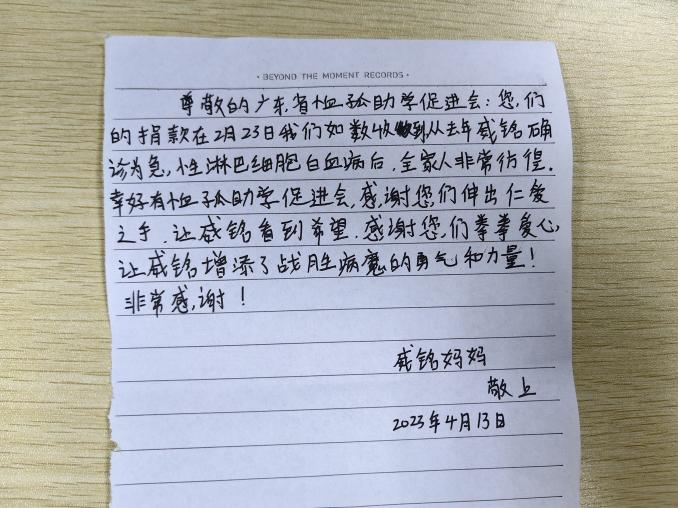 · BEYOND THE MOMENT RECORDS ·
尊敬的广东省恤孤助学促进会：您们
的捐款在2月23日我们如数收到从去年威铭确
诊为急性淋巴细胞白血病后，全家人非常彷徨．
幸好有恤孤助学促进会，感谢您们伸出仁爱
之手，让威铭看到希望．感谢您们拳拳爱心，
让威铭增添了战胜病魔的勇气和力量！
非常感谢！
威铭妈妈
敬上
2023年4月13日